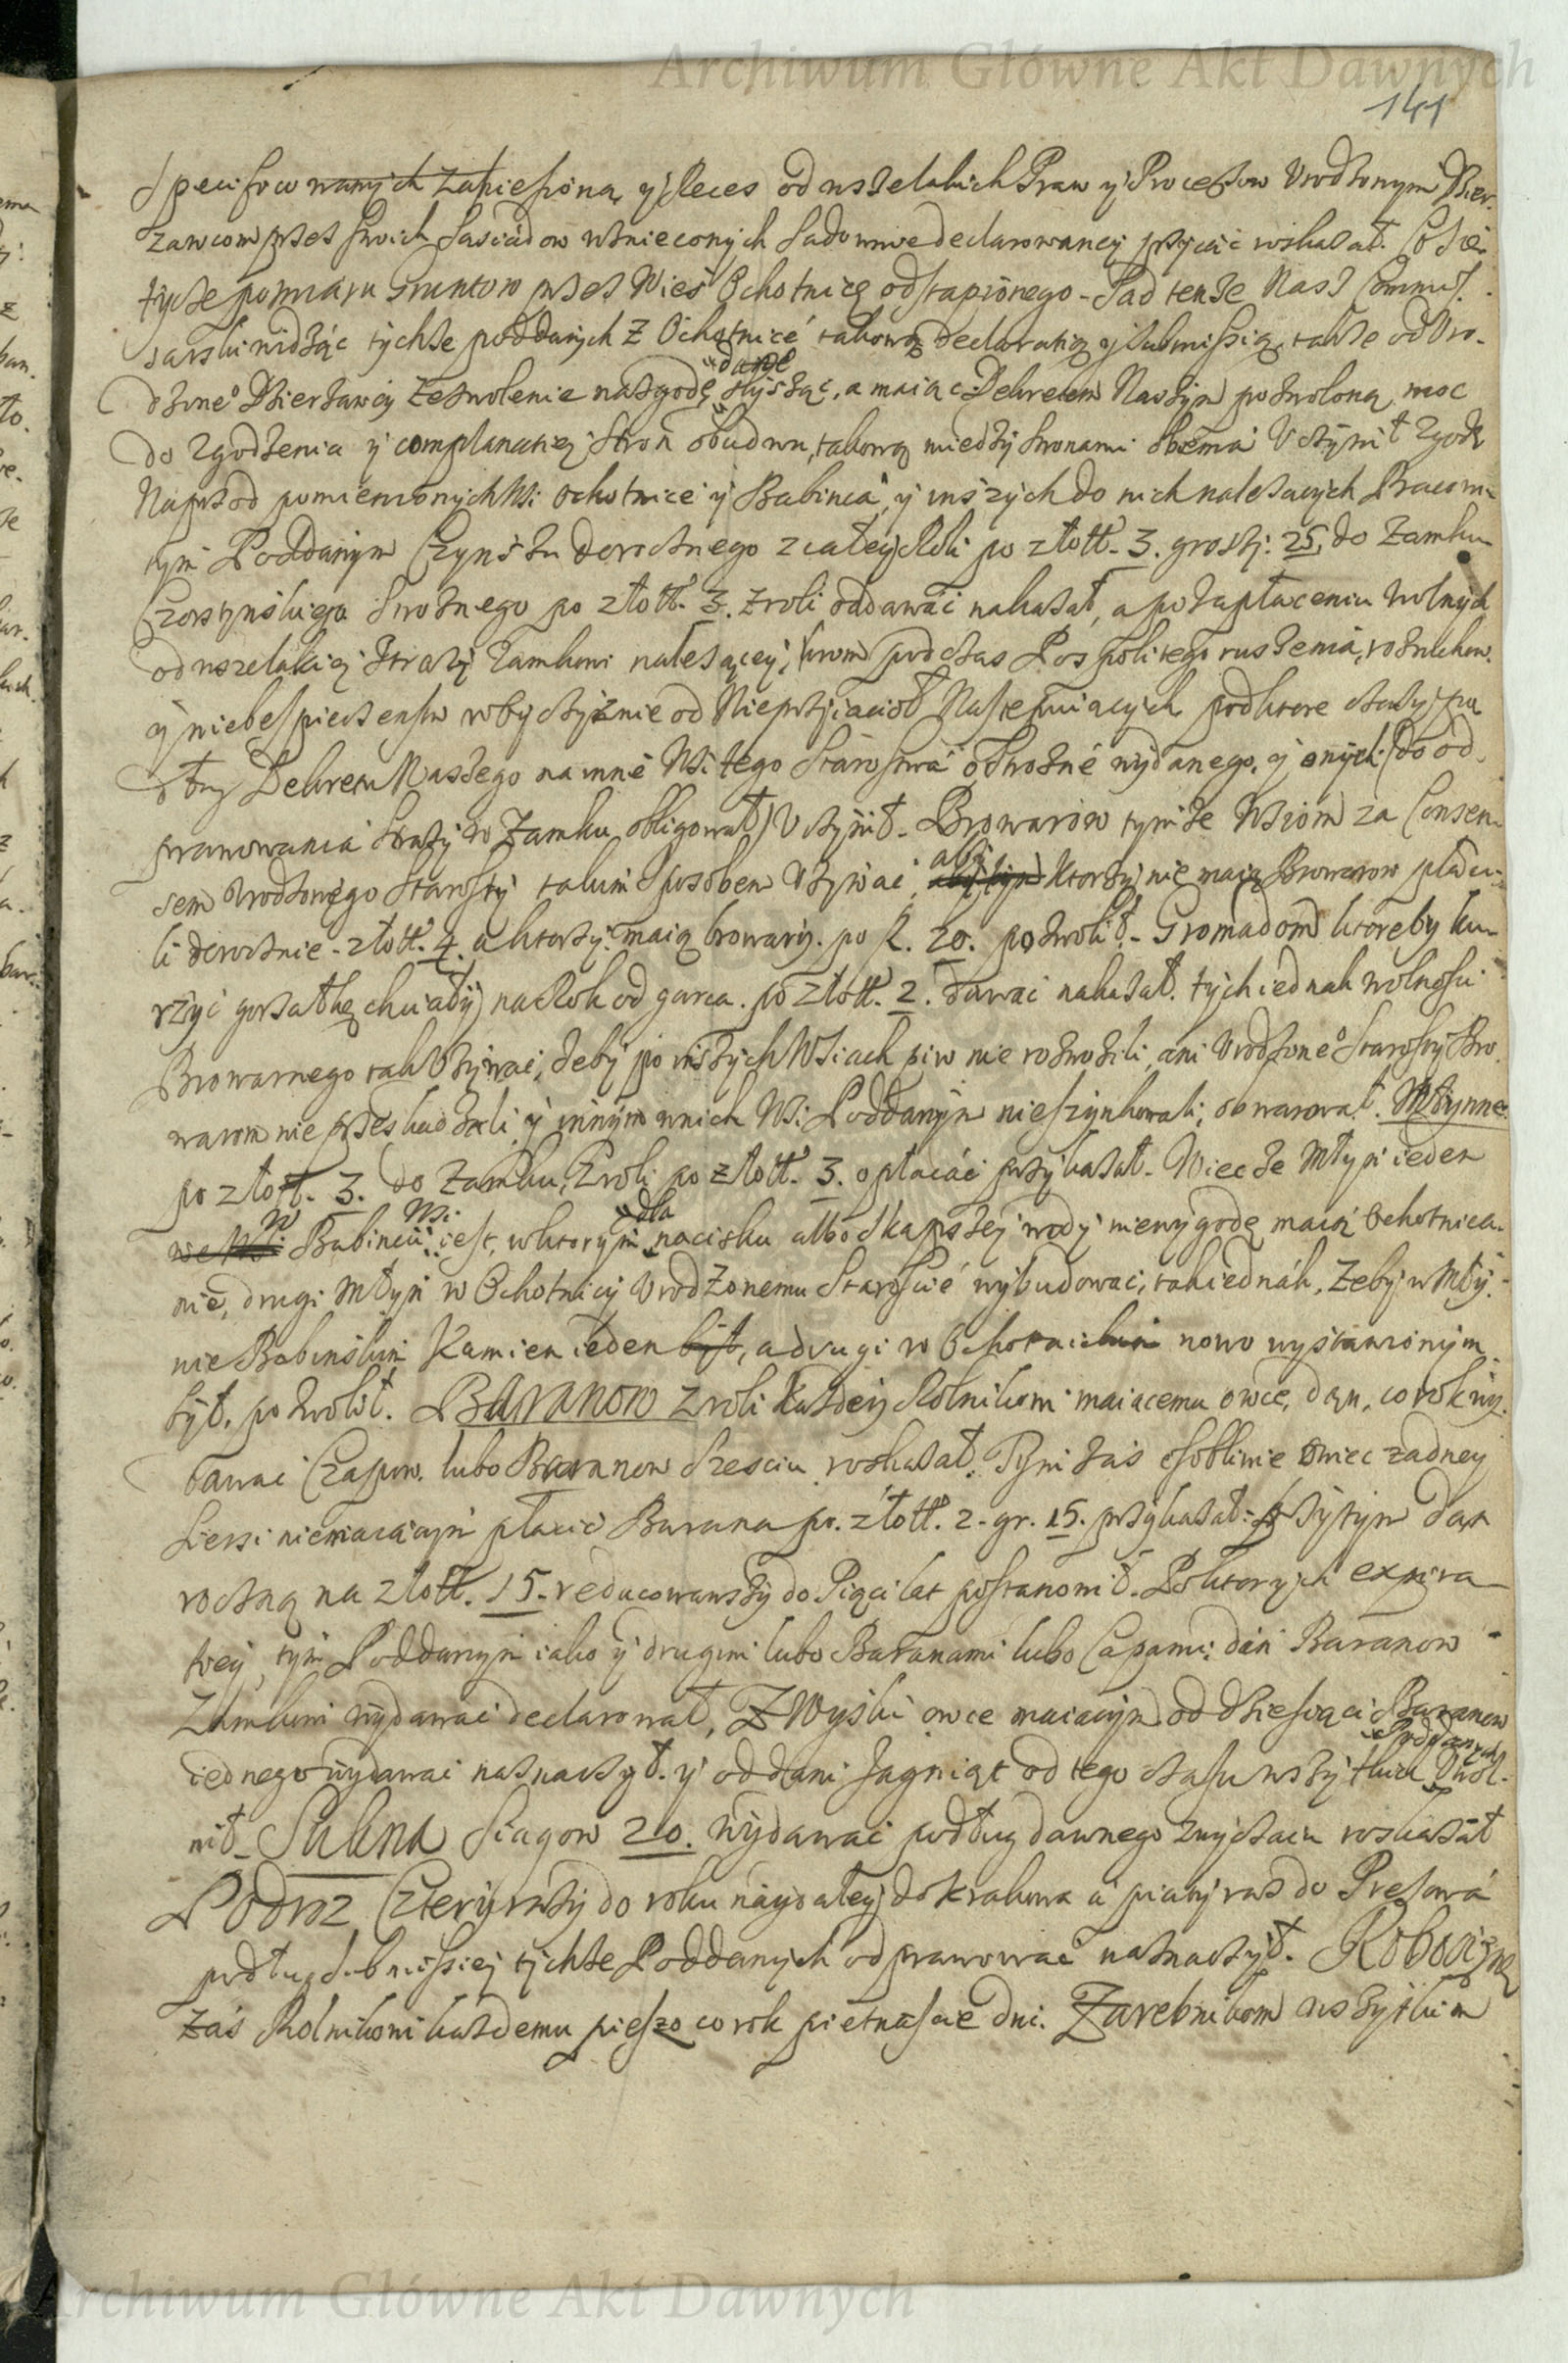 Archiwum Główne Akt Dawnych
141
Specificowanych zaniesioną y Reces od wszelakich Praw y Processow Vrodzonym Dzier-
zawcom przez swich Sasiadow wznieconych Sadownie declarowancy przyiąc wskazał. Co sie
tycze pomiaru Gruntow przez Wieś Ochotnicę odstąpionego - Sad tenze Nasz Commis-
sarski widząc tychze poddanych z Ochotnice takową declaratią y submissią, takze od Vro-
dzone° Dzierzawcy zezwolenie na zgodę dane słysząc, a maiąc Dekretem Naszym pozwoloną moc
do zgodzenia y complanatiey stron obudwu, takową miedzy stronami obiema Vczynił zgodę
Naprzod pomienionych Wsi Ochotnice y Babinca, y inszych do nich nalezacych Pracowi-
tym Poddanym Czynszu dorocznego z całey Roli po złott. 3. groszy. 25, do Zamku
Czorsztynskiego Stroznego po złott. 3. z roli oddawać nakazał, a po zapłaceniu wolnych
od wszelakiey strazy Zamkowi nalezącey, (krom podczas Pospolitego ruszenia, rozruchow.
y niebespieczenstw w oyczyznie od Nieprzyiacioł Nastepuiacych pod ktore czasy po-
dług Dekretu Naszego na inne Wsi tego Starostwa o strozne wydanego, y onych do od-
prawowania strazy w Zamku obligował) Vczynił. Browarow tymze Wsiom za Consen-
sem Vrodzonego Starosty takim sposobem Vzywać, aby Ktorzy nie maią Browarow płaci-
li dorocznie - złott. 4. a ktorzy maią browary. po f. 20. pozwolił. - Gromadom ktoreby ku-
rzyć gorzałkę chciały na Rok od garca. po złott. 2. dawać nakazał. tych iednak wolnosci
Browarnego tak Vzywać, zeby po inszych Wsiach piw nie rozwozili, ani Vrodzone° Starosty Bro-
warom nie przeskadzali, y innym w nich Wsi Poddanym nieszynkowali, obwarował. Młynne
po złott. 3. do Zamku, z roli po złott. 3. opłacać przykazał. Wiec ze Młyn ieden
we Wsi w Babincu Wsi iest, w ktorym dla nacisku albo skąpszey wody niewygodę maią Ochotnica-
nie, drugi Młyn w Ochotnicy Vrodzonemu Staroscie wybudować, tak iednak, zeby w Mły-
nie Babinskim Kamien ieden był, a drugi w Ochotnickim nowo wystawionym
był, pozwolił. Baranow z roli kazdey Rolnikowi maiącemu owce, dań, co rok wy-
dawać Czapow. lubo Baranow szesciu roskazał. Tym zas osobliwie owiec zadney
siersi niemaiącym płacić Barana po. złott. 2. gr. 15. przykazał: tym dań
roczną na złott. 15. reducowawszy do Pięci lat postanowił. Po ktorych expira-
tiey, tym Poddanym iako y drugim lubo Baranami lubo Capami, dań Baranow
Zamkowi wydawać declarował, Z Wyski owce maiącym od dziesiąci Baranow
iednego wydawać naznaczył. y od dani Iagniąt od tego czasu wszytkich Poddanych Vwol-
nił. Sukna siągow 20. wydawać podług dawnego zwyczaiu roskazał
Podroz Cztery razy do roku naydaley do Krakowa a piąty raz do Presowa
podług submissiey tychze Poddanych odprawować naznaczył. Robociznę
zaś Rolnikowi kazdemu pieszo co rok pietnascie dni. Zarebnikom wszytkim
Archiwum Główne Akt Dawnych